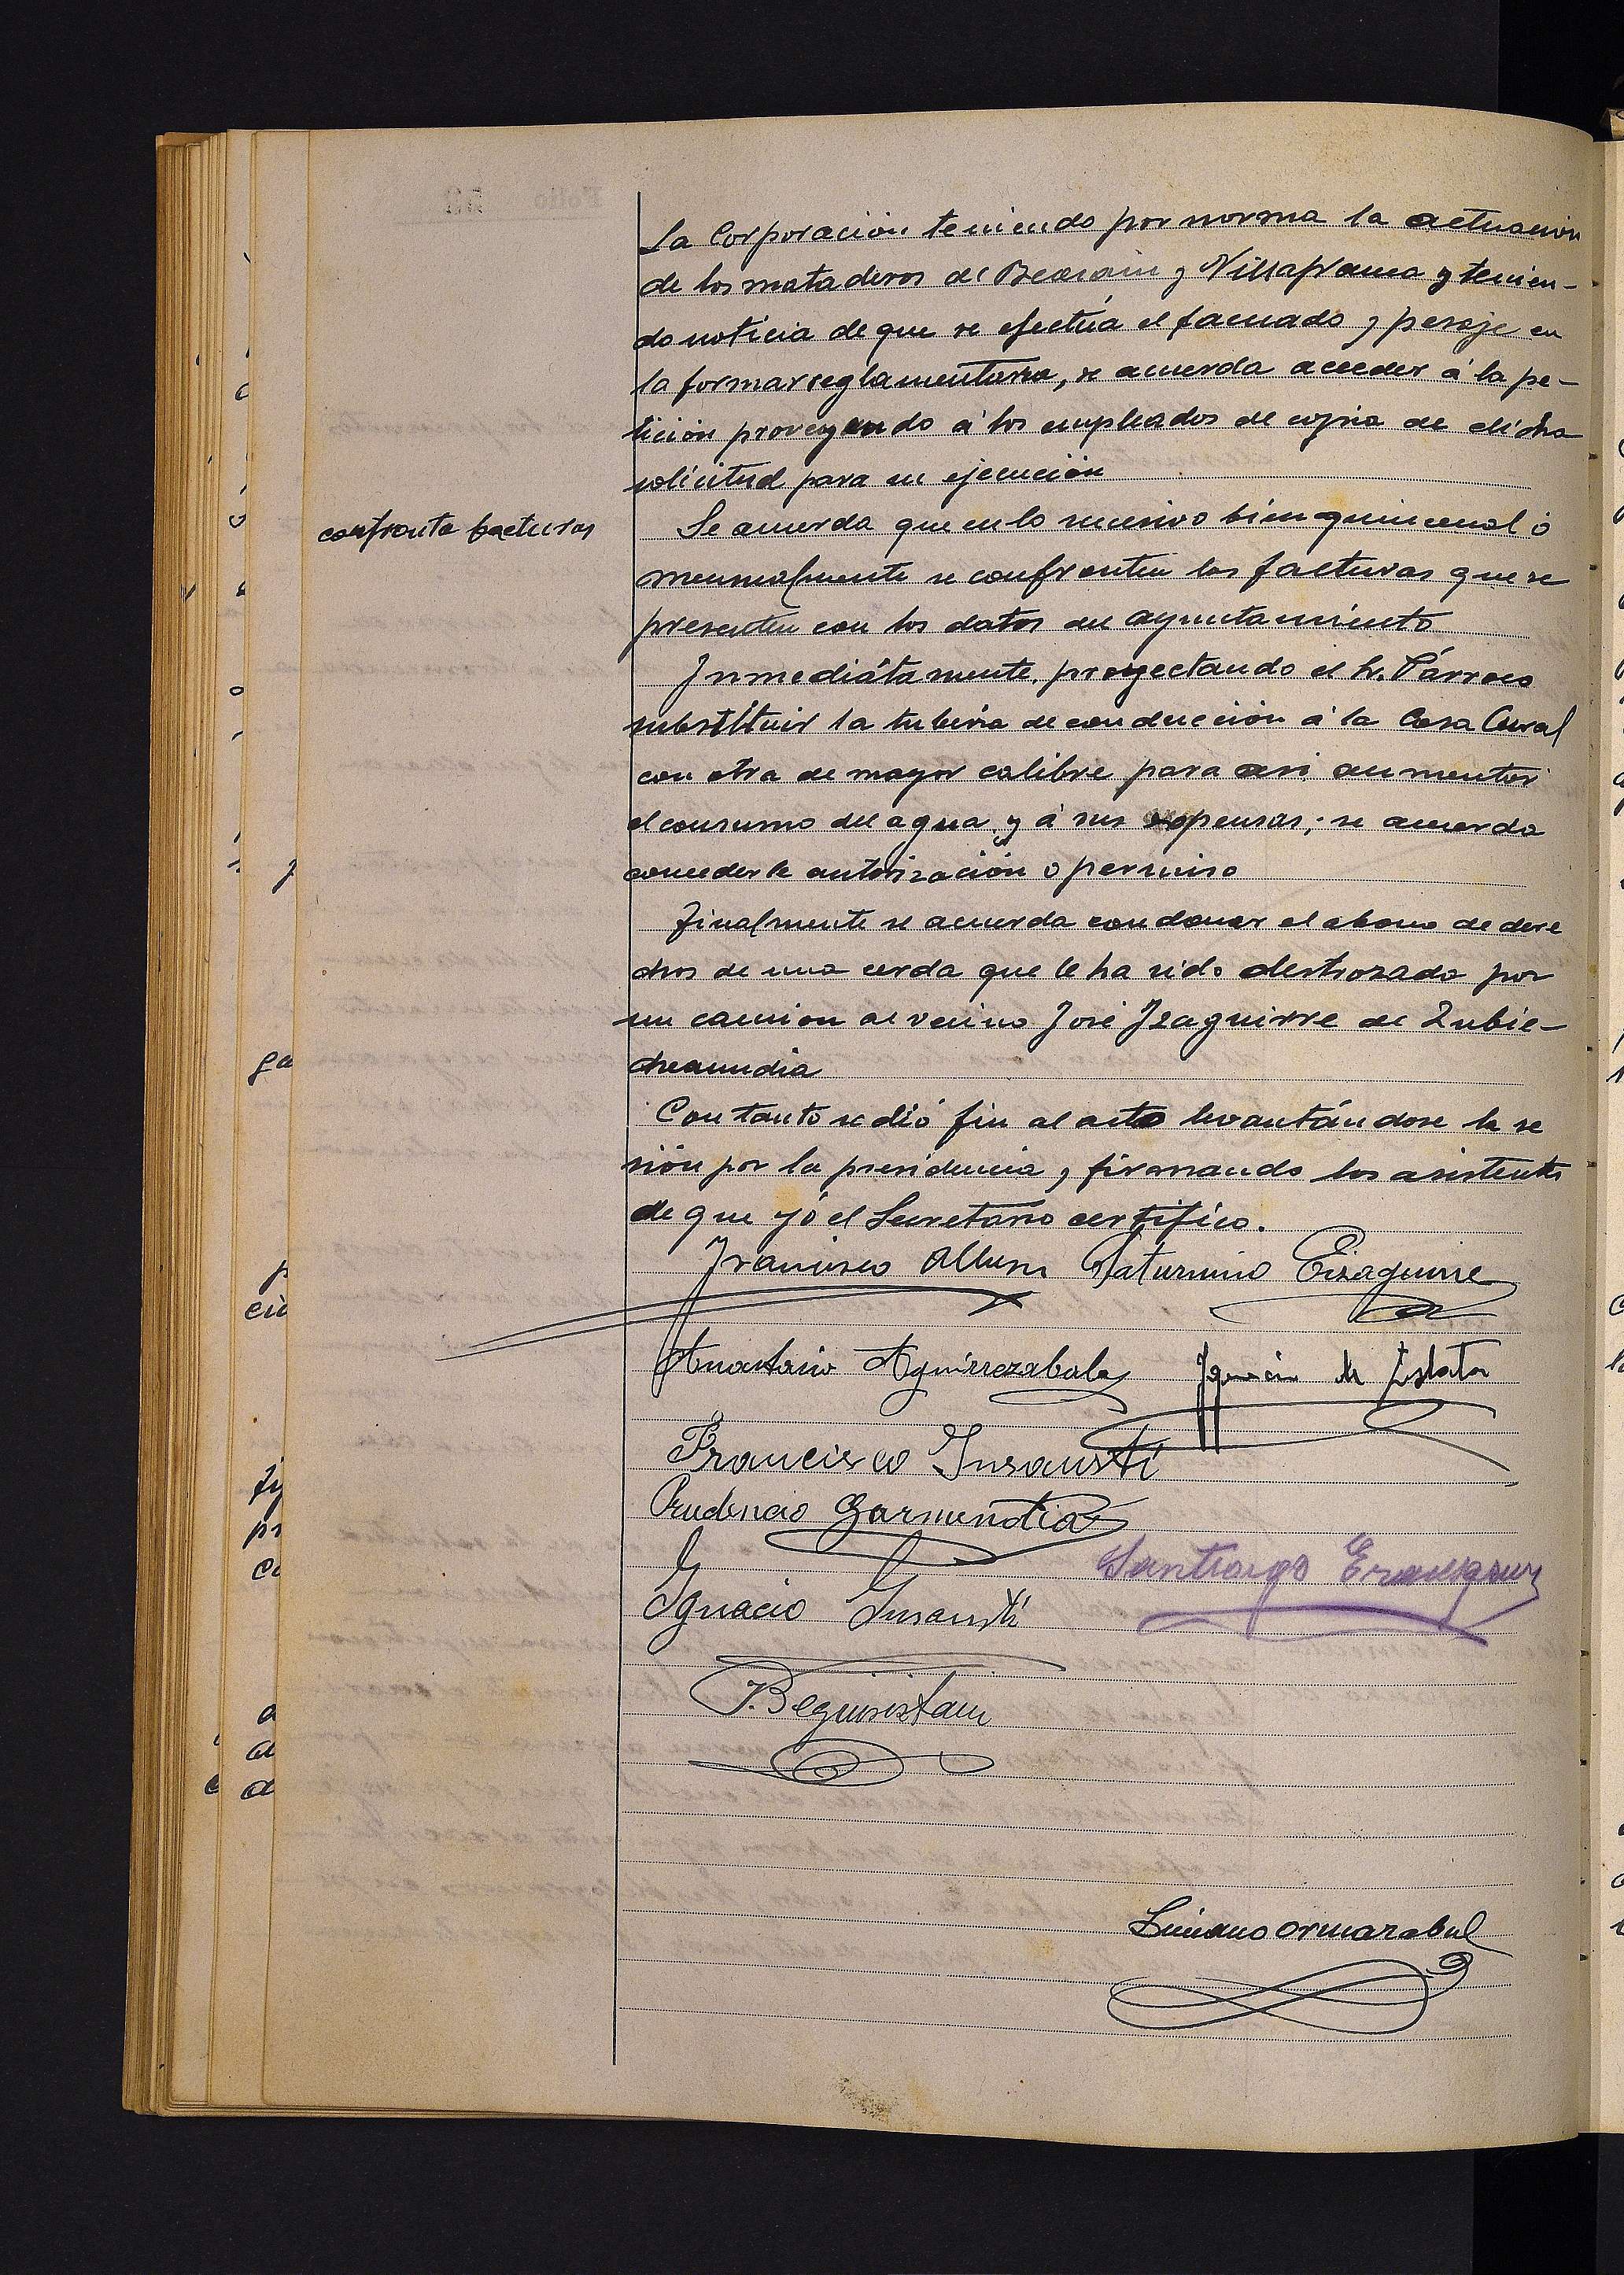 La Corporación teniendo por norma la actuación
de los mataderos de Beasain y Villafranca y tenien-
do noticia de que se efectúa el faenado y pesaje en
la forma reglamentaria, se acuerda acceder á la pe-
tición proveyendo á los empleados de copia de dicha
solicitud para su ejecución
confronta facturas
Se acuerda que en lo sucesivo bien quincenal ó
mensualmente se confronten las facturas que se
presenten con los datos del ayuntamiento
Inmediátamente, proyectando el Sr. Párroco
substituir la tuberia de conducción á la Casa Cural
con otra de mayor calibre para asi aumentar
el consumo del agua y á sus expensas; se acuerda
concederle autorización o permiso
Finalmente se acuerda condonar el abono de dere
chos de una cerda que le ha sido destrozada por
un camion al vecino José Izaguirre de Zubie-
Con tanto se dió fin al acto levantándose la se
sión por la presidencia y firmando los asistentes
de que yó el Secretario certifico.
Francisco Saturnino Eizaguirre
Anastasio Aguirrezabala Ignacio M
Francisco Insausti
Prudencio Garmendia
Santiago
Ignacio Insausti
J. Beguiristain
Luciano Ormazabal